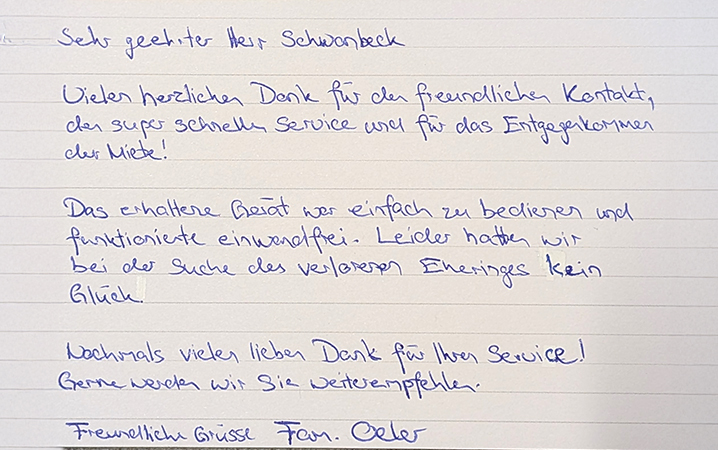 Sehr geehrter Herr Schwanbeck
Vielen herzlichen Dank für den freundlichen Kontakt,
den super schnellen Service und für das Entgegenkommen
der Miete!
Das erhaltene Gerät war einfach zu bedienen und
funktionierte einwandfrei. Leider hatten wir
bei der Suche des verlorenen Eheringes kein
Glück.
Nochmals vielen lieben Dank für Ihren Service!
Gerne werden wir Sie weiterempfehlen.
Freundliche Grüsse Fam. Oeler